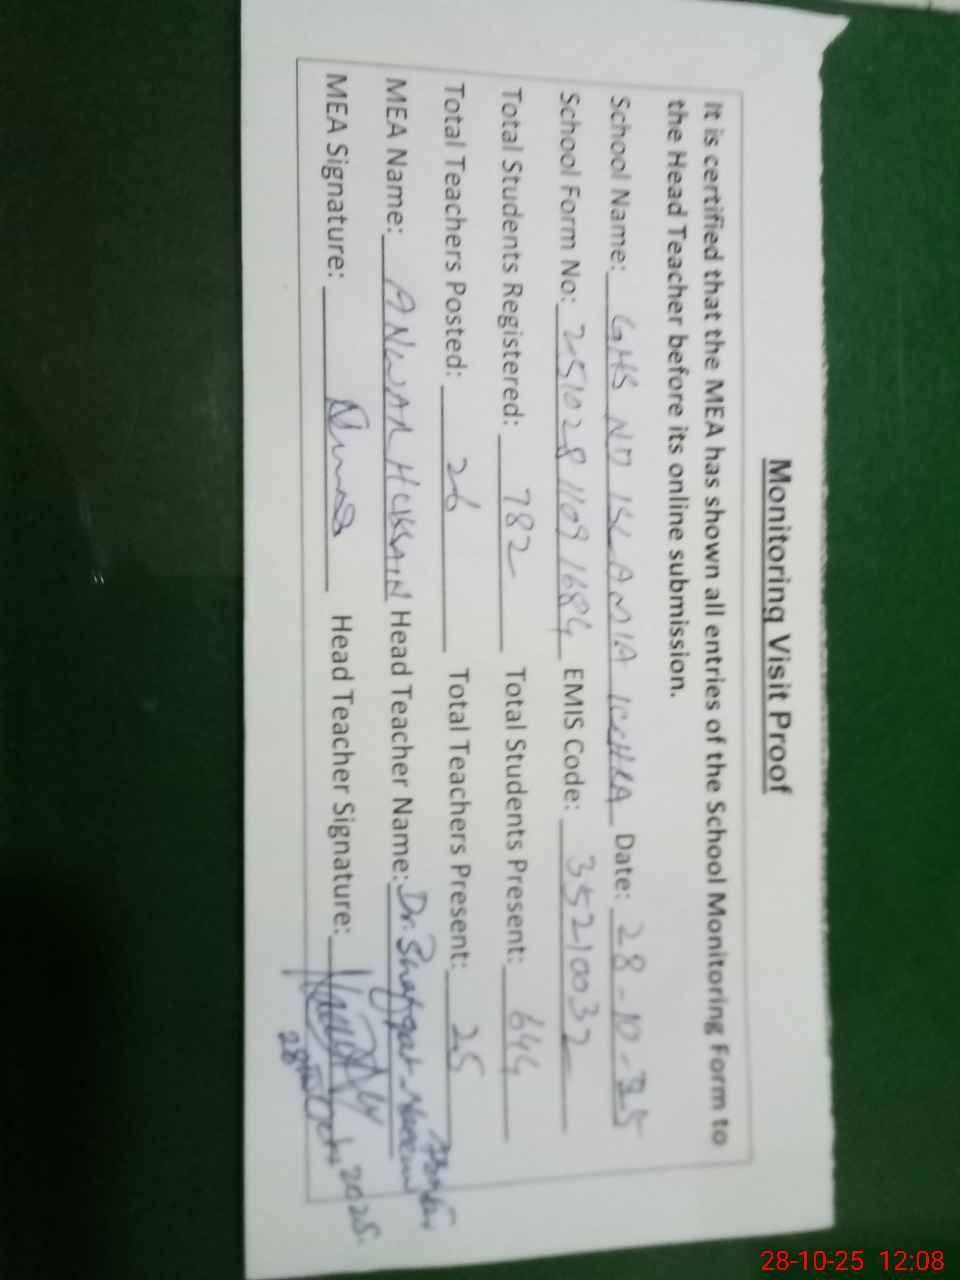 Monitoring Visit Proof
It is certified that the MEA has shown all entries of the School Monitoring Form to
the Head Teacher before its online submission.
School Name: GHS NO ISLAMIA ICCHRA Date: 28-10-25
School Form No: 25102811091684 EMIS Code: 35210032
Total Students Registered: 782 Total Students Present: 644
Total Teachers Posted: 26 Total Teachers Present: 25
MEA Name: ANWAR HUSSAIN Head Teacher Name: Dr. Shafqat
MEA Signature: Head Teacher Signature:
28th Oct, 2025.
28-10-25 12:08